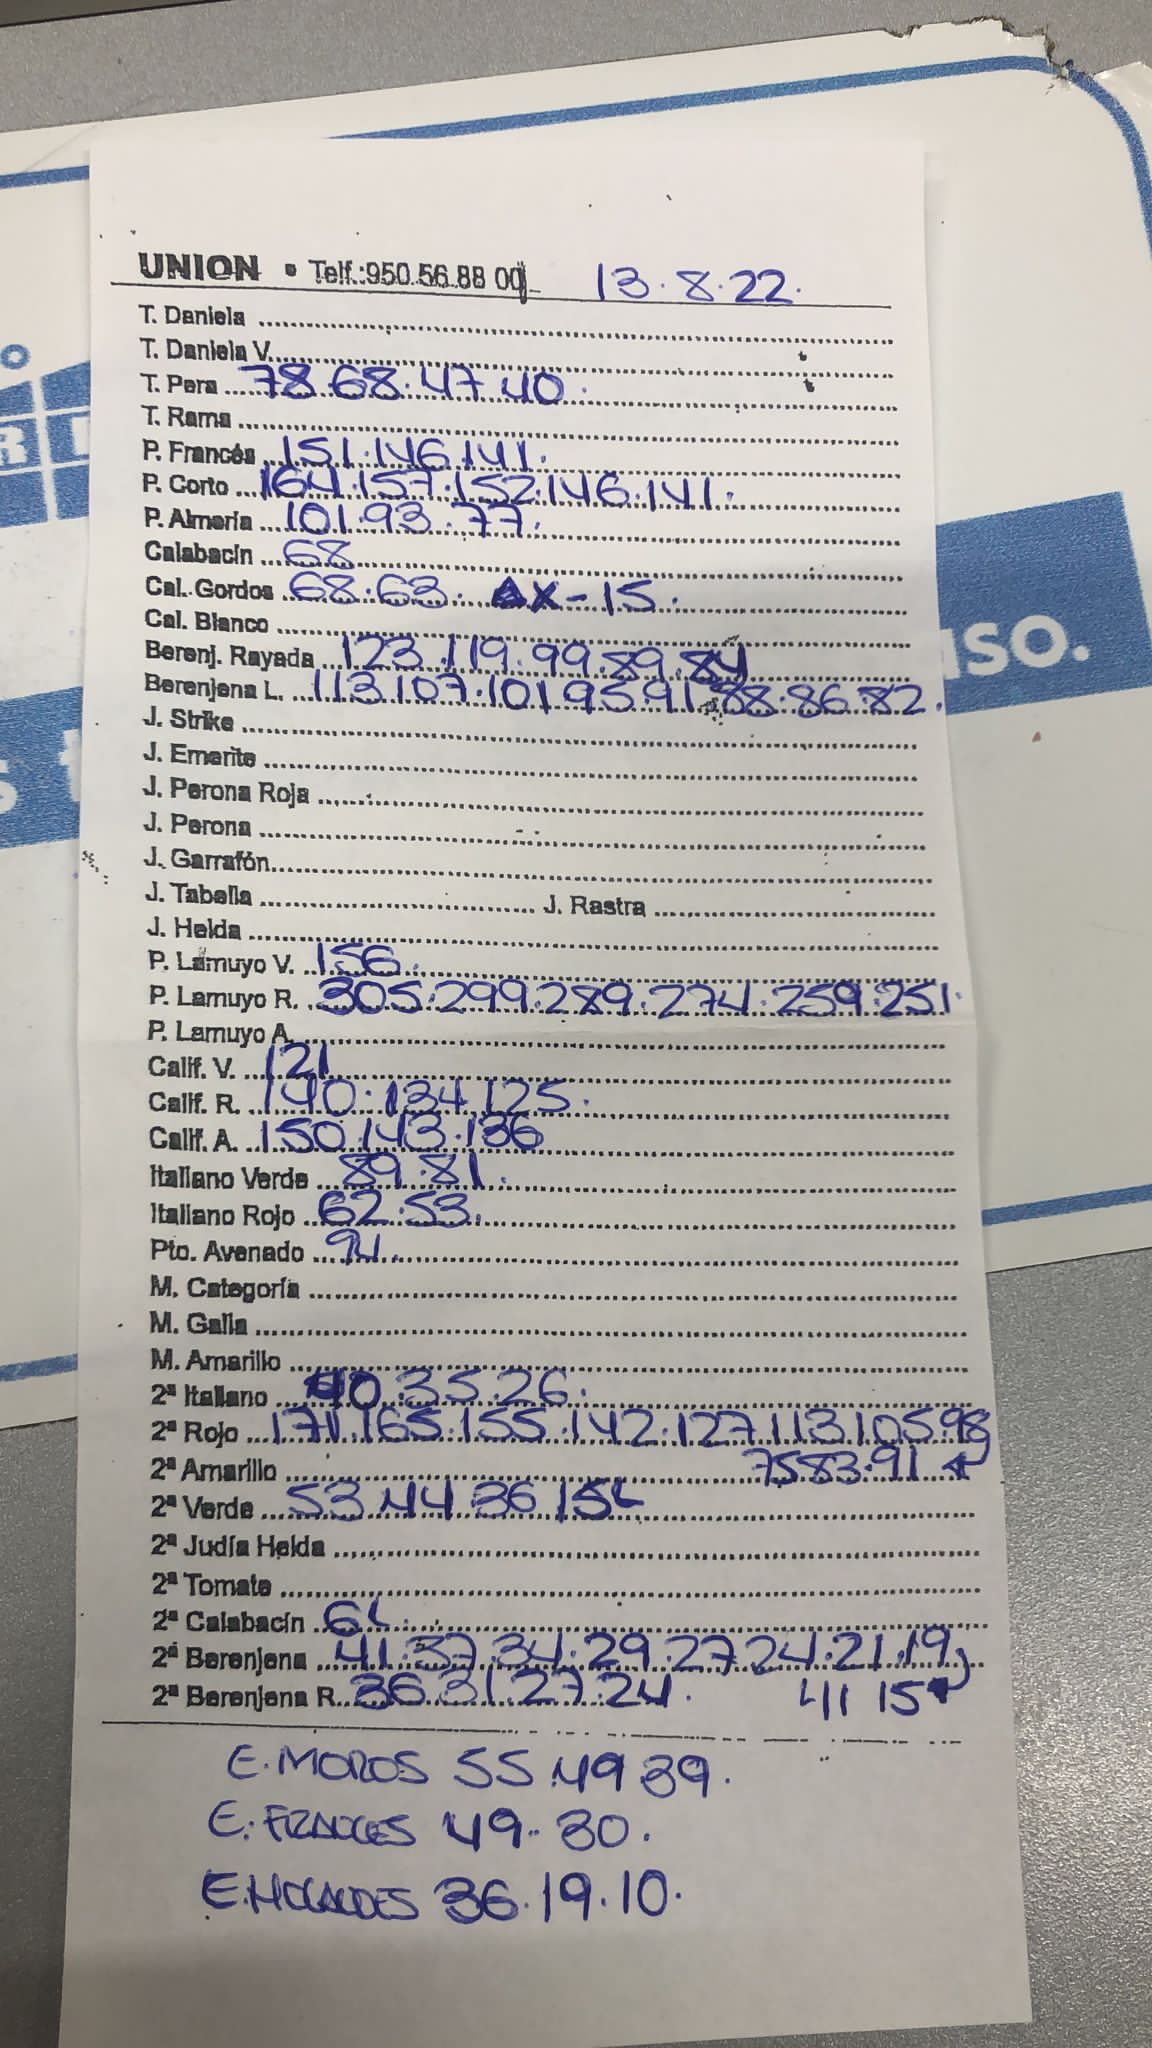 UNION • Telf.:950.56.88 00 13.8.22.
T. Daniela
T. Daniela V.
T. Pera 78.68.47.40.
T. Rama
P. Francés 151.146.141.
P. Corto 164.157.152.146.141.
P. Almería 101.93.77.
Calabacín 68
Cal. Gordos 68.63. X-15.
Cal. Blanco
Berenj. Rayada 123.119.99.89.84
Berenjena L. 113.107.101.95.91.88.86.82.
J. Strike
J. Emerite
J. Perona Roja
J. Perona
J. Garrafón
J. Tabella J. Rastra
J. Helda
P. Lamuyo V. 156.
P. Lamuyo R. 305.299.289.274.259.251.
P. Lamuyo A.
Calif. V. 121
Calif. R. 140.134.125.
Calif. A. 150.143.136
Italiano Verde 89.81.
Italiano Rojo 62.53.
Pto. Avenado 94.
M. Categoría
M. Galia
M. Amarillo
2ª Italiano 40.35.26.
2ª Rojo 171.165.155.142.127.113.105.98
2ª Amarillo 75.83.91
2ª Verde 53.44.36.15L
2ª Judía Helda
2ª Tomate
2ª Calabacín 6L.
2ª Berenjena 41.37.34.29.27.24.21.19
2ª Berenjena R. 36.31.27.24. 411 15
E.MOROS 55.49 39.
E.FRANCES 49.30.
E.HOLANDES 36.19.10.